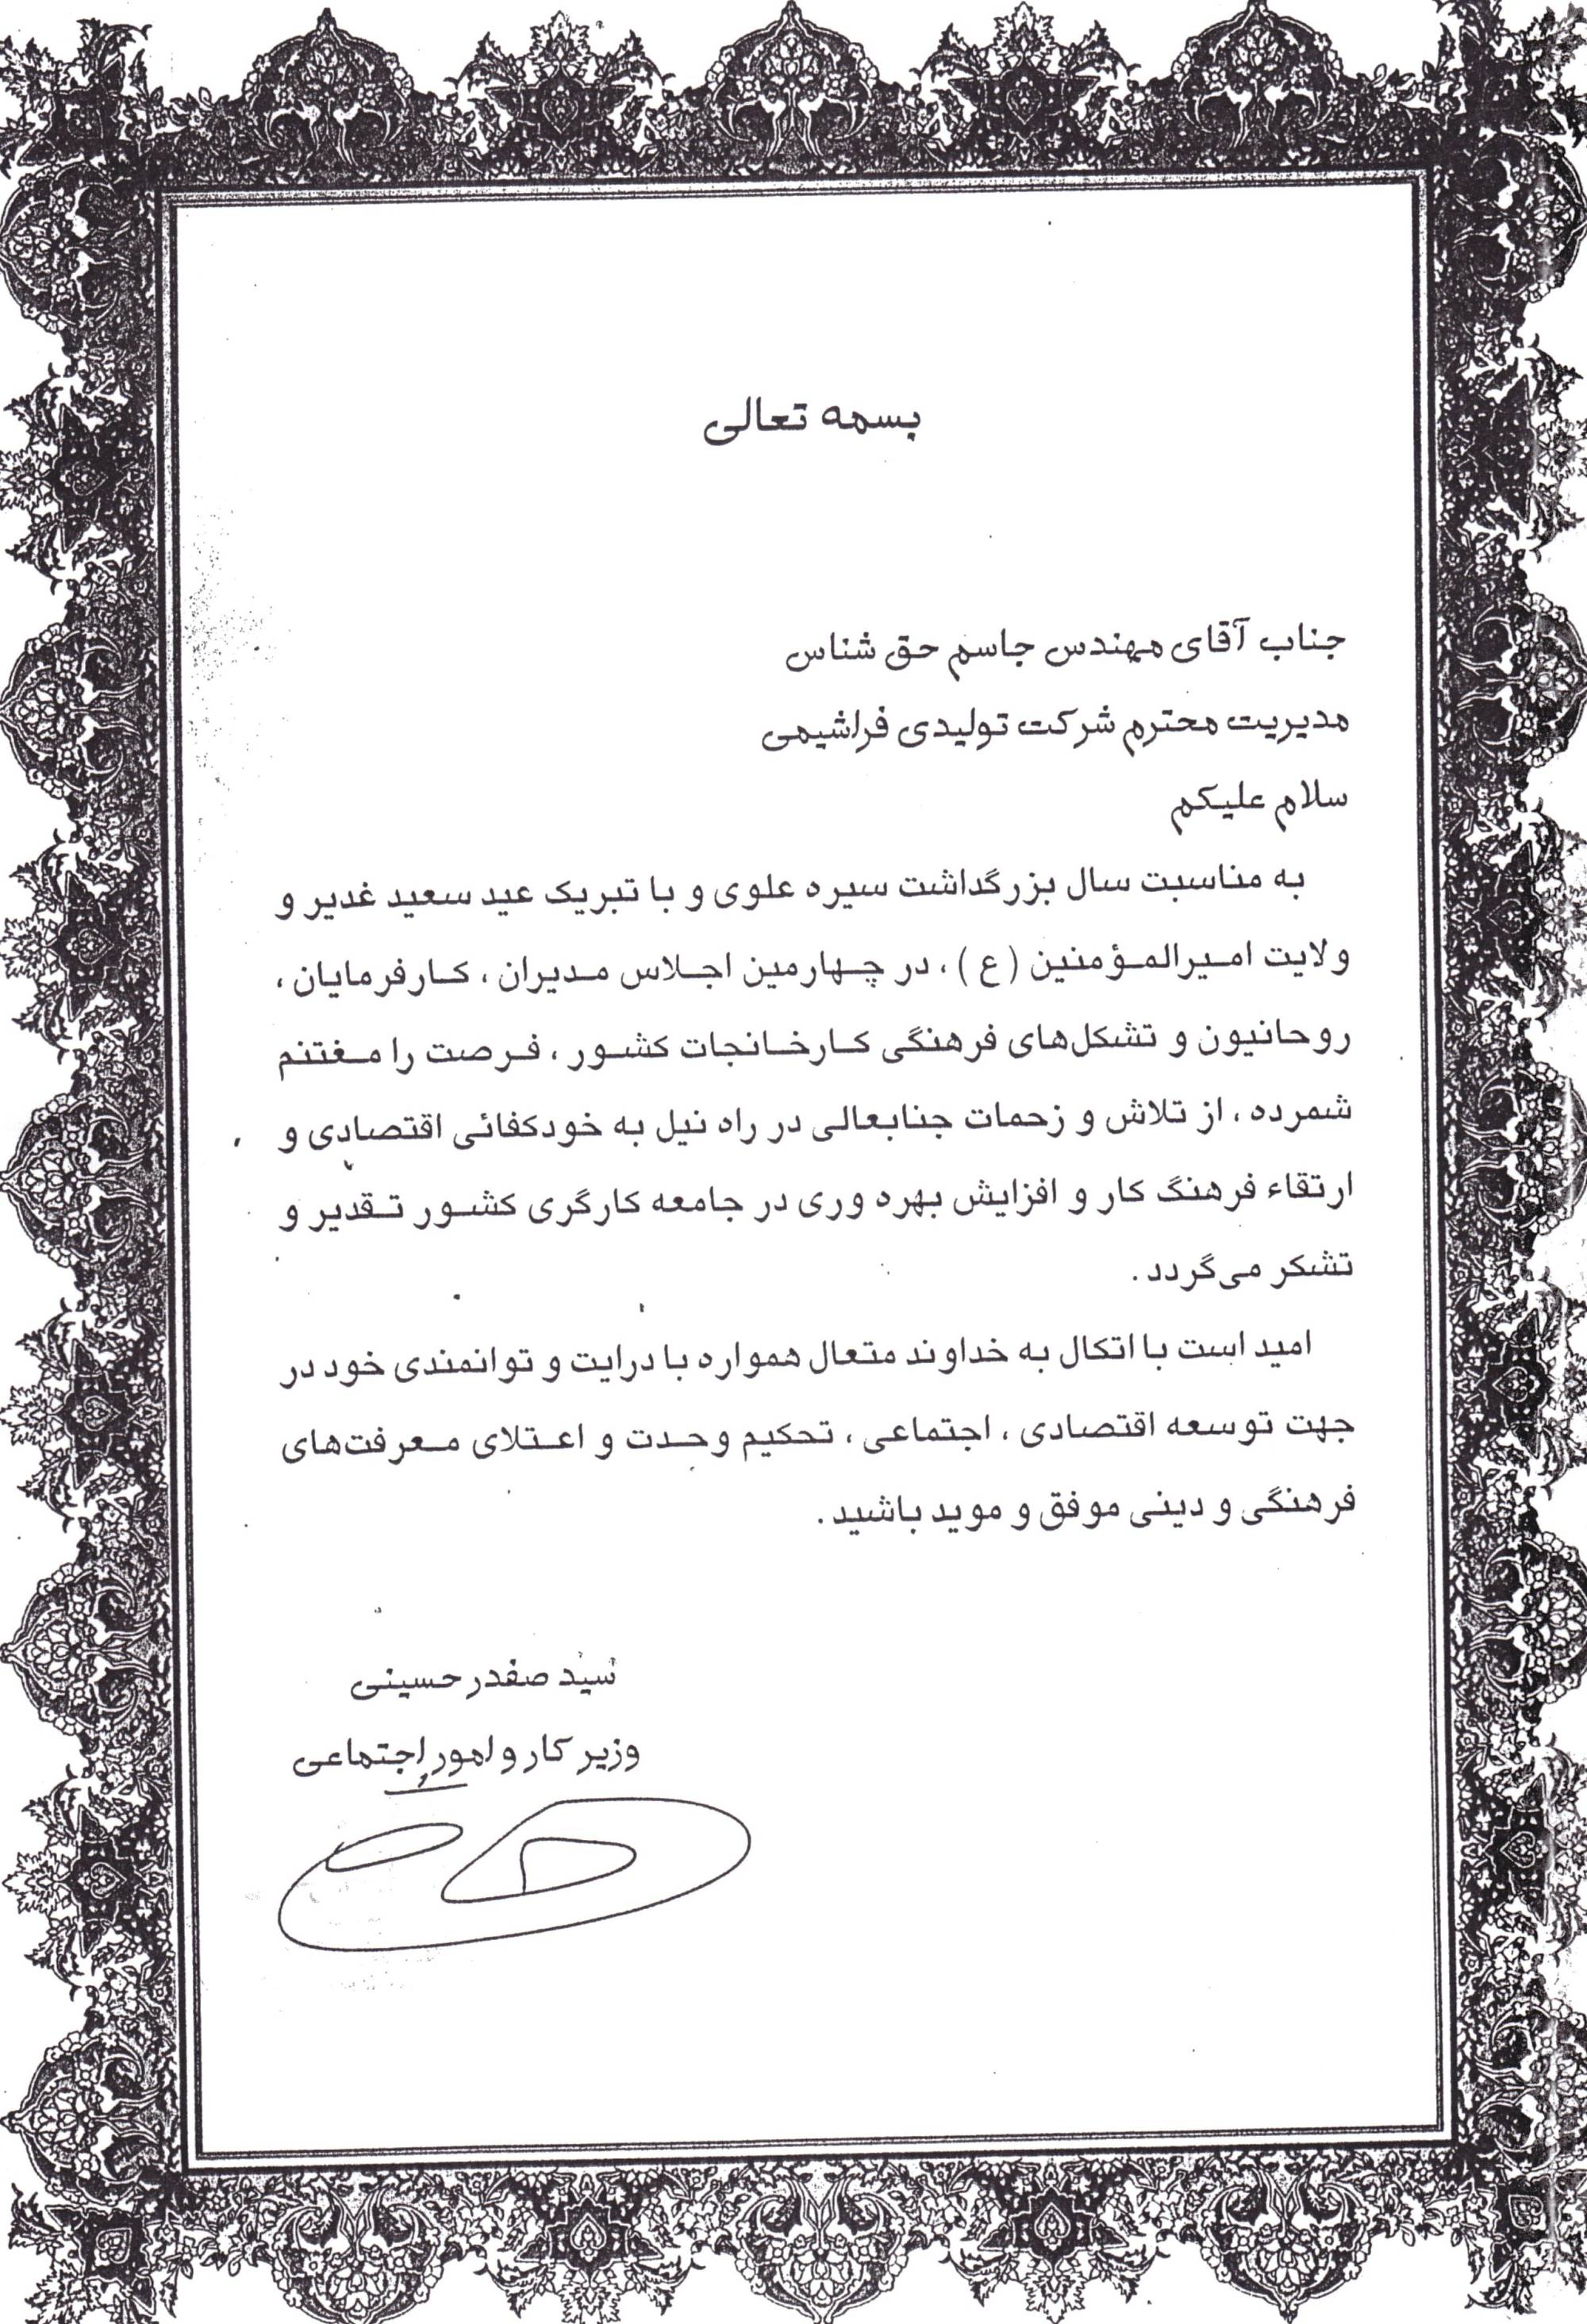 بسمه تعالی
جناب آقای مهندس جاسم حق شناس
مدیریت محترم شرکت تولیدی فراشیمی
سلام علیکم
به مناسبت سال بزرگداشت سیره علوی و با تبریک عید سعید غدیر و
ولایت امیرالمؤمنین (ع)، در چهارمین اجلاس مدیران، کارفرمایان،
روحانیون و تشکل‌های فرهنگی کارخانجات کشور، فرصت را مغتنم
شمرده، از تلاش و زحمات جنابعالی در راه نیل به خودکفائی اقتصادی و
ارتقاء فرهنگ کار و افزایش بهره وری در جامعه کارگری کشور تقدیر و
تشکر می‌گردد.
امید است با اتکال به خداوند متعال همواره با درایت و توانمندی خود در
جهت توسعه اقتصادی، اجتماعی، تحکیم وحدت و اعتلای معرفت‌های
فرهنگی و دینی موفق و موید باشید.
سید صفدر حسینی
وزیر کار و امور اجتماعی